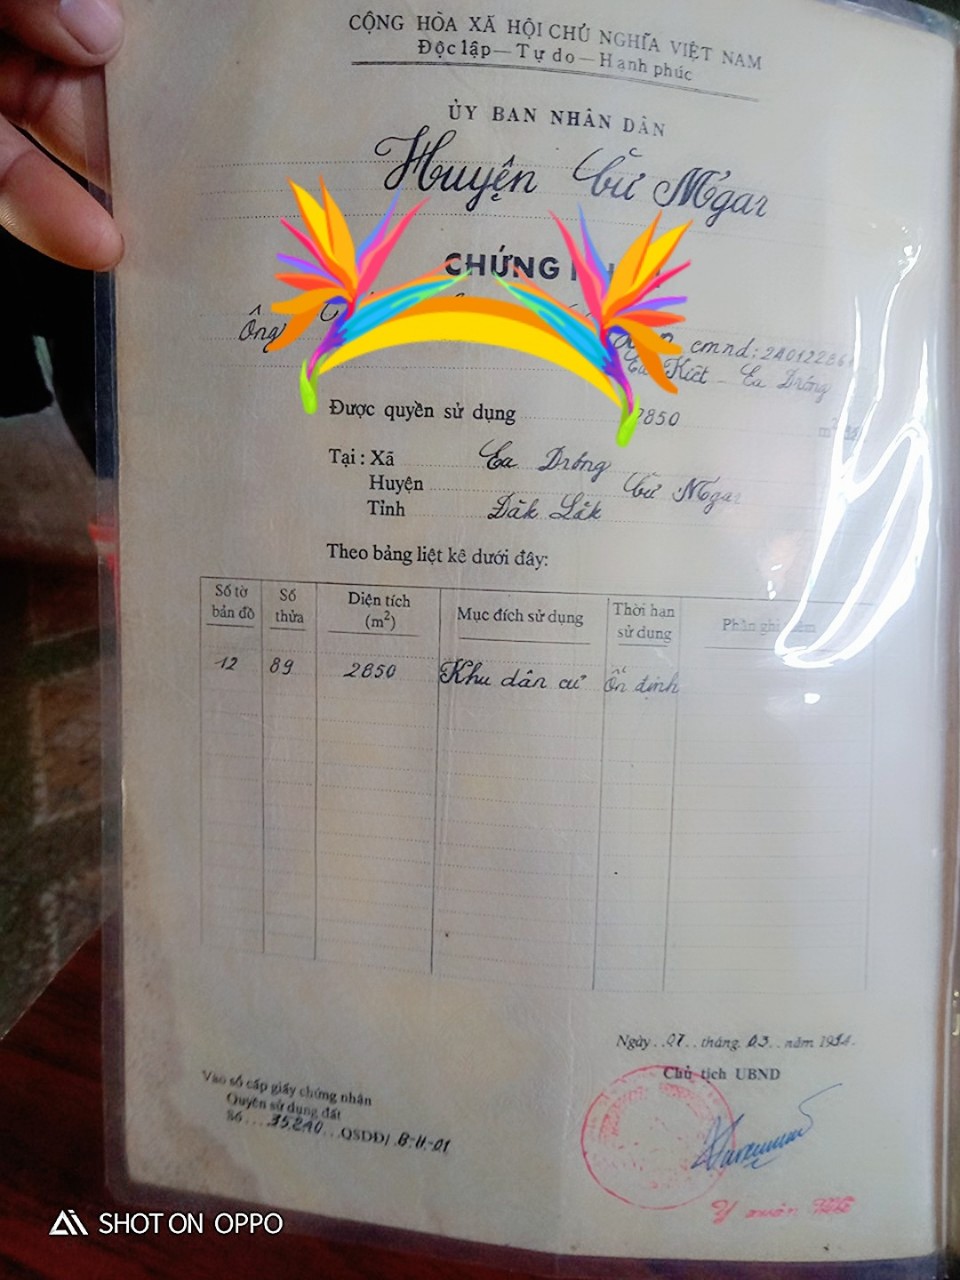 CỘNG HÒA XÃ HỘI CHỦ NGHĨA VIỆT NAM
Độc lập — Tự do — Hạnh phúc
ỦY BAN NHÂN DÂN
Huyện Cư M'gar
CHỨNG
Ông
cmnd: 2401228
Ea Kiết - Ea Drông
Được quyền sử dụng 2850 m²
Tại: Xã Ea Drông
Huyện Cư M'gar
Tỉnh Đăk Lăk
Theo bảng liệt kê dưới đây:
Số tờ bản đồ Số thửa Diện tích (m²) Mục đích sử dụng Thời hạn sử dụng Phần ghi thêm
12 89 2850 Khu dân cư Ổn định
Ngày 07 tháng 03 năm 1994
Chủ tịch UBND
Vào sổ cấp giấy chứng nhận
Quyền sử dụng đất
Số 35210 QSDĐ/ B-II-01
SHOT ON OPPO